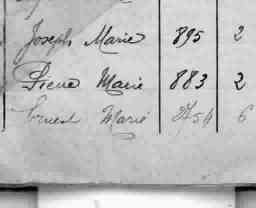 Joseph Marie 895 2
Irène Marie 883 2
Ernest Marié 2754 6